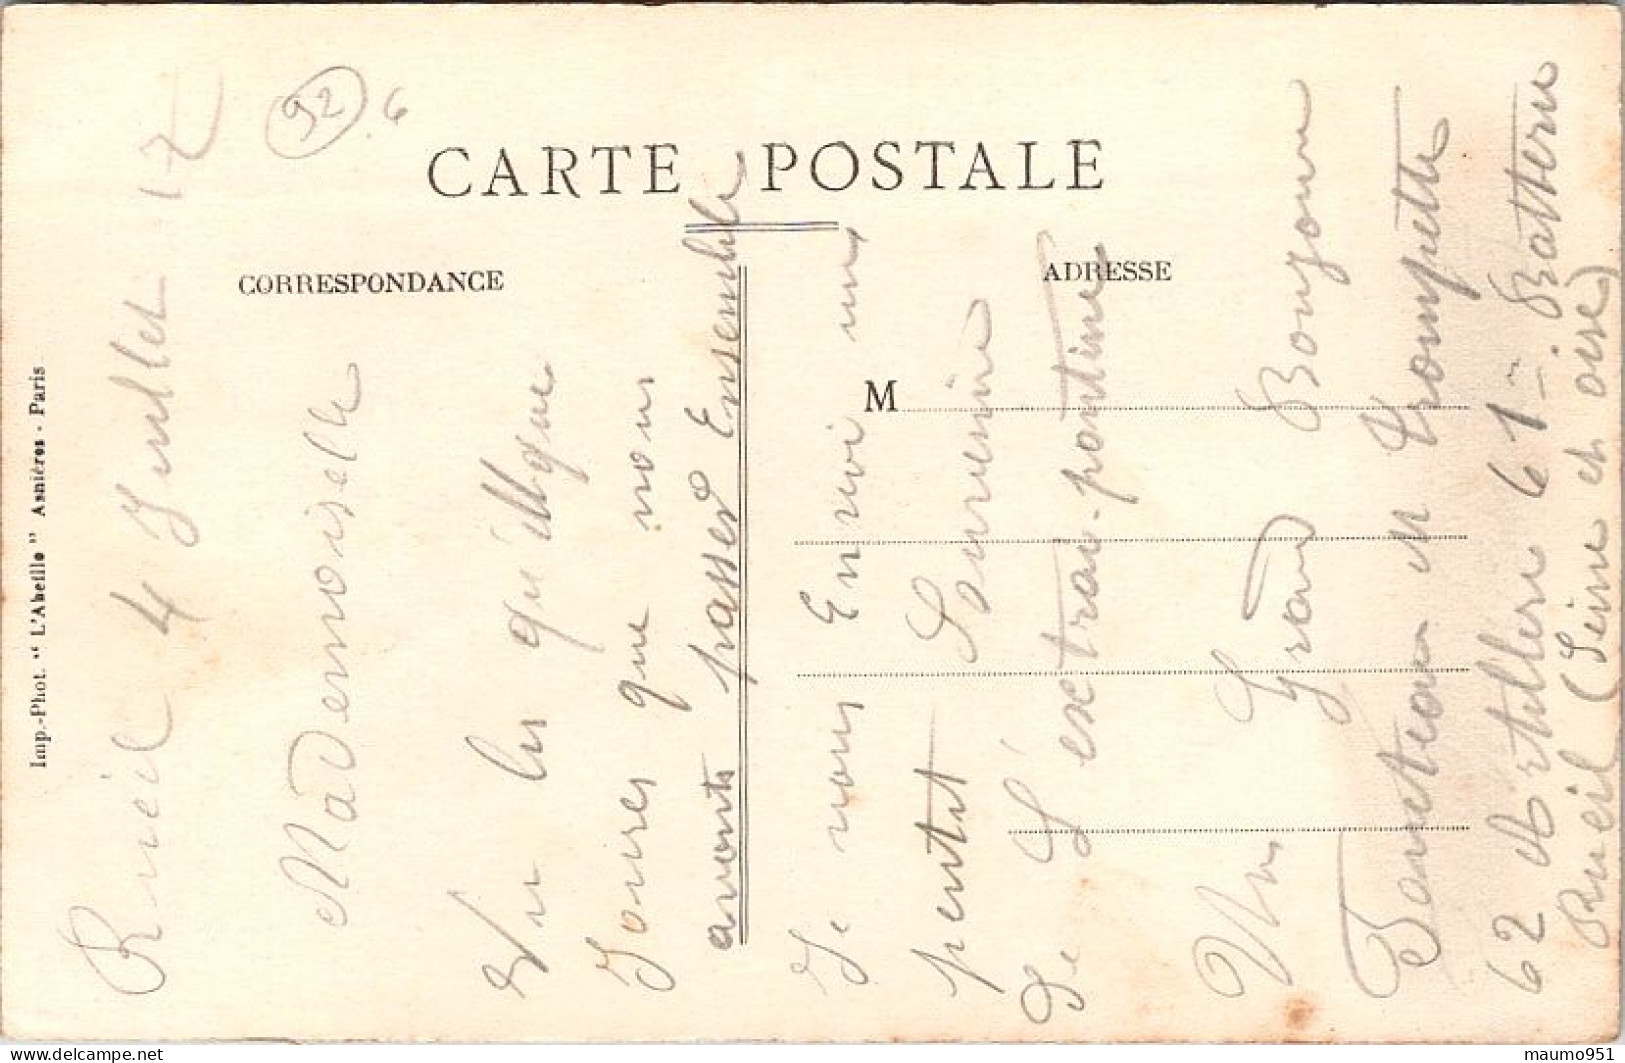 92
6
CARTE POSTALE
CORRESPONDANCE
ADRESSE
M
Imp.-Phot. " L'Abeille " Asnières - Paris
Rueil 4 Juillet 17
Mademoiselle
Vu les quélque
Joures que nous
avonts passer Ensemble
Je vous Envoi un
pentit Souvenire
De L'extrav-pontine
Un Grand Bonjour
Trompette
62 Artillerie 61 - Batterie
Rueil (Seine et oise)
maumo951